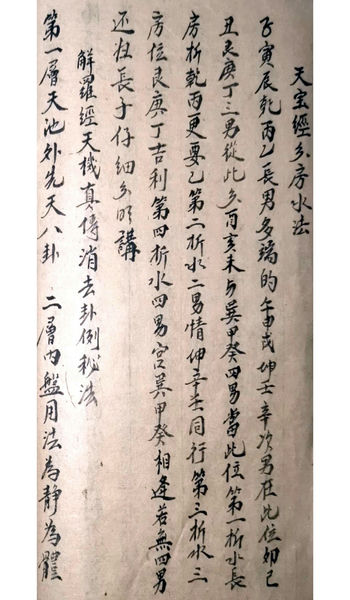 天宝經分房水法
子寅辰乾丙乙長男多端的午申戌坤壬辛次男在此位卯己
丑艮庚丁三男從此分酉亥未与巽甲癸四男當此位第一折水長
房折乾丙更要乙第二折水二男情坤辛壬同行第三折水三
房位艮庚丁吉利第四折水四男宮巽甲癸相逢若無四男
还归長子仔細分明講
解羅經天機真傳消去卦例秘法
第一層天池外先天八卦 二層内盤用法為静為體